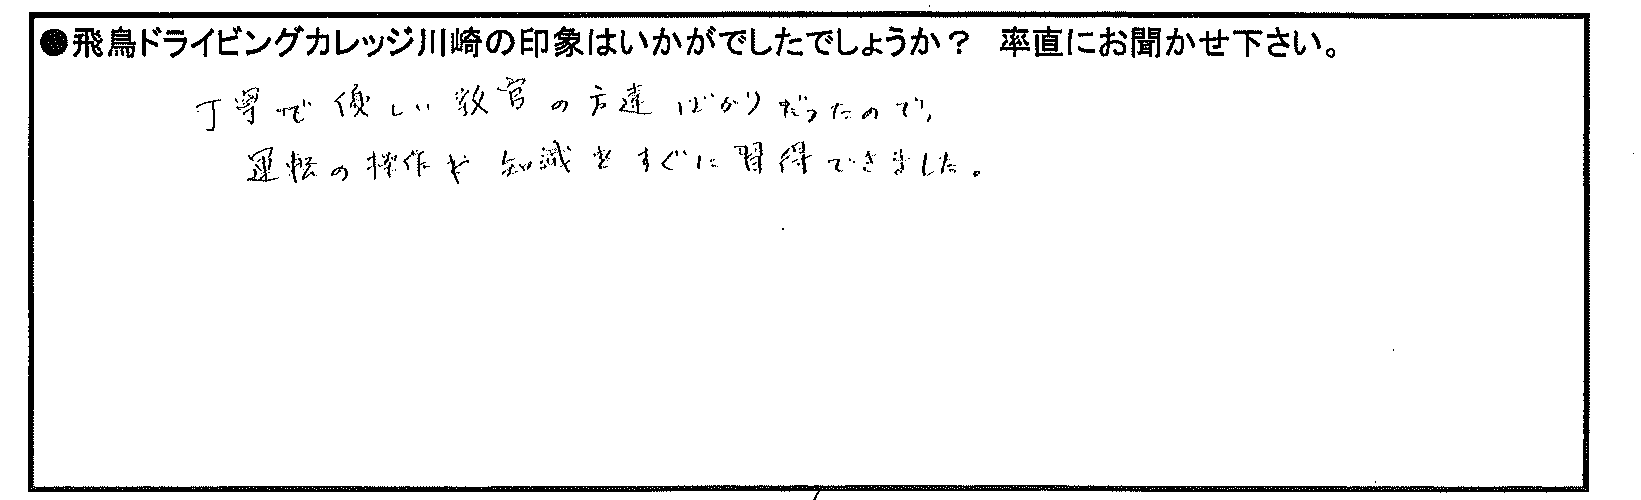 ●飛鳥ドライビングカレッジ川崎の印象はいかがでしたでしょうか？　率直にお聞かせ下さい。
丁寧で優しい教官の方達ばかりだったので、
運転の操作や知識をすぐに習得できました。